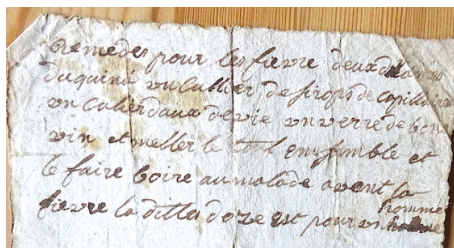 Remedes pour les fievre deux dragmes
du quina un cullier de sirops de capillaire
un culier deaux de vie un verre de bon
vin et meller le tout ensemble et
le faire boire au malade avent la
fievre la ditte doze est pour un homme